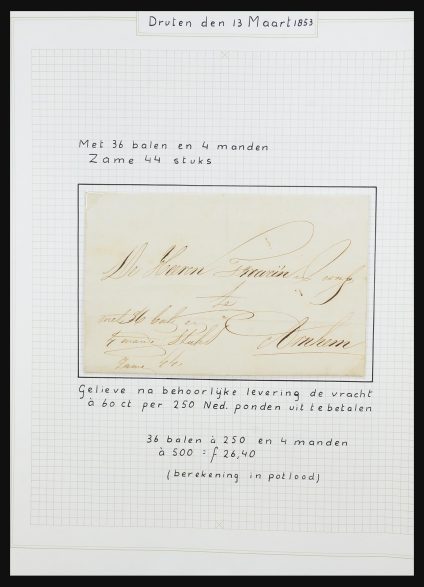 Druten den 13 Maart 1853
Met 36 balen en 4 manden
Zame 44 stuks
De Heeren
te
Arnhem
met 36 bal en
4 mande
Zame 44
Gelieve na behoorlijke levering de vracht
à 60 ct per 250 Ned. ponden uit te betalen
36 balen à 250 en 4 manden
à 500 = f 26,40
(berekening in potlood)